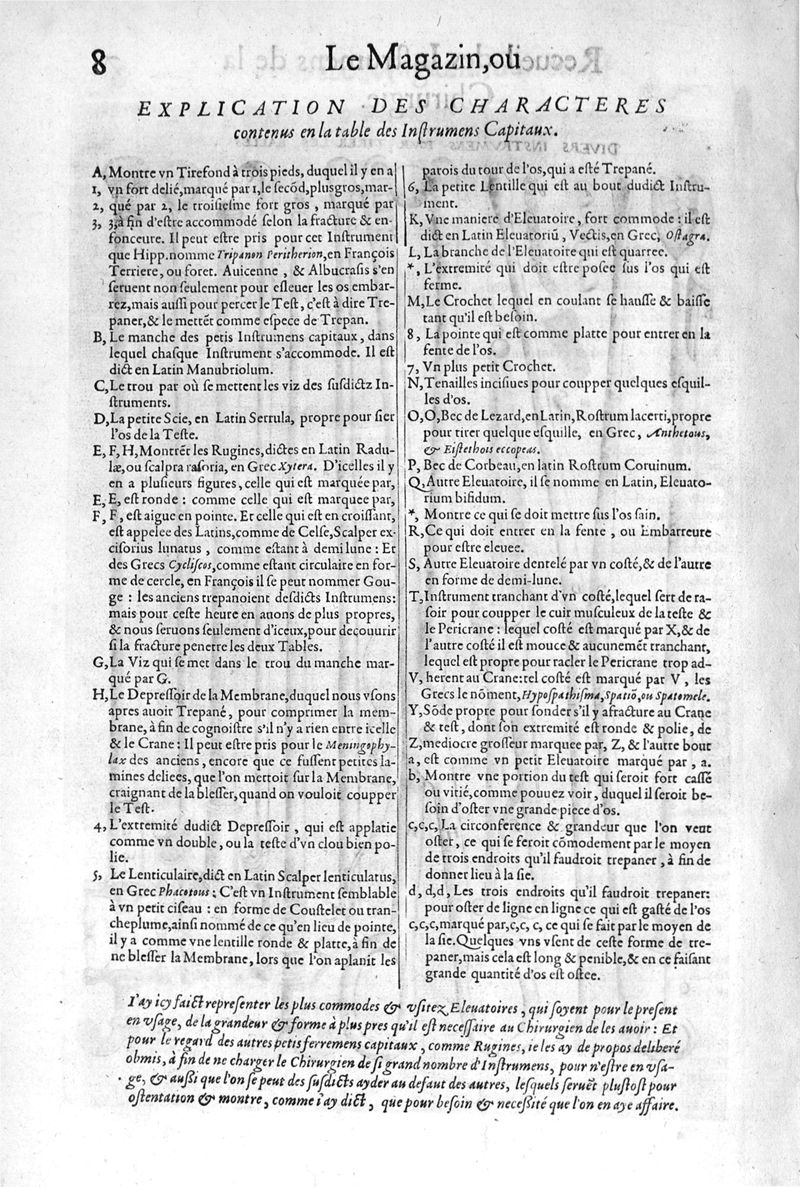 8
Le Magazin, où
EXPLICATION DES CHARACTERES
contenus en la table des Inſtrumens Capitaux.
A, Montre vn Tirefond à trois pieds, duquel il y en a
1, vn fort delié, marqué par 1, le ſecõd, plus gros, mar-
2, qué par 2, le troiſieſme fort gros, marqué par
3, 3, à fin d'eſtre accommodé ſelon la fracture & en-
fonceure. Il peut eſtre pris pour cet Inſtrument
que Hipp. nomme Tripanon Peritherion, en François
Terriere, ou foret. Auicenne, & Albucraſis s'en
ſeruent non ſeulement pour eſleuer les os embar-
rez, mais auſſi pour percer le Teſt, c'eſt à dire Tre-
paner, & le mettẽt comme eſpece de Trepan.
B, Le manche des petis Inſtrumens capitaux, dans
lequel chaſque Inſtrument s'accommode. Il eſt
dict en Latin Manubriolum.
C, Le trou par où ſe mettent les viz des ſuſdictz In-
ſtruments.
D, La petite Scie, en Latin Serrula, propre pour ſier
l'os de la Teſte.
E, F, H, Montrẽt les Rugines, dictes en Latin Radu-
læ, ou ſcalpra raſoria, en Grec Xytera. D'icelles il y
en a pluſieurs figures, celle qui eſt marquée par,
E, E, eſt ronde : comme celle qui eſt marquee par,
F, F, eſt aigue en pointe. Et celle qui eſt en croiſſant,
eſt appelee des Latins, comme de Celſe, Scalper ex-
ciſorius lunatus, comme eſtant à demi lune : Et
des Grecs Cycliſcos, comme eſtant circulaire en for-
me de cercle, en François il ſe peut nommer Gou-
ge : les anciens trepanoient deſdicts Inſtrumens:
mais pour ceſte heure en auons de plus propres,
& nous ſeruons ſeulement d'iceux, pour decouurir
ſi la fracture penetre les deux Tables.
G, La Viz qui ſe met dans le trou du manche mar-
qué par G.
H, Le Depreſſoir de la Membrane, duquel nous vſons
apres auoir Trepané, pour comprimer la mem-
brane, à fin de cognoiſtre s'il n'y a rien entre icelle
& le Crane : Il peut eſtre pris pour le Meningophy-
lax des anciens, encore que ce fuſſent petites la-
mines deliees, que l'on mettoit ſur la Membrane,
craignant de la bleſſer, quand on vouloit coupper
le Teſt.
4, L'extremité dudict Depreſſoir, qui eſt applatie
comme vn double, ou la teſte d'vn clou bien po-
lie.
5, Le Lenticulaire, dict en Latin Scalper lenticulatus,
en Grec Phacotous; C'eſt vn Inſtrument ſemblable
à vn petit ciſeau : en forme de Couſtelet ou tran-
cheplume, ainſi nommé de ce qu'en lieu de pointe,
il y a comme vne lentille ronde & platte, à fin de
ne bleſſer la Membrane, lors que l'on aplanit les
parois du tour de l'os, qui a eſté Trepané.
6, La petite Lentille qui eſt au bout dudict Inſtru-
ment.
K, Vne maniere d'Eleuatoire, fort commode : il eſt
dict en Latin Eleuatoriũ, Vectis, en Grec, Oſtagra.
L, La branche de l'Eleuatoire qui eſt quarree.
*, L'extremité qui doit eſtre poſee ſus l'os qui eſt
ferme.
M, Le Crochet lequel en coulant ſe hauſſe & baiſſe
tant qu'il eſt beſoin.
8, La pointe qui eſt comme platte pour entrer en la
fente de l'os.
7, Vn plus petit Crochet.
N, Tenailles inciſiues pour coupper quelques eſquil-
les d'os.
O, O, Bec de Lezard, en Latin, Roſtrum lacerti, propre
pour tirer quelque eſquille, en Grec, Anthetous,
& Eiſtethois eccopeas.
P, Bec de Corbeau, en latin Roſtrum Coruinum.
Q, Autre Eleuatoire, il ſe nomme en Latin, Eleuato-
rium bifidum.
*, Montre ce qui ſe doit mettre ſus l'os ſain.
R, Ce qui doit entrer en la fente, ou Embarreure
pour eſtre eleuee.
S, Autre Eleuatoire dentelé par vn coſté, & de l'autre
en forme de demi-lune.
T, Inſtrument tranchant d'vn coſté, lequel ſert de ra-
ſoir pour coupper le cuir muſculeux de la teſte &
le Pericrane : lequel coſté eſt marqué par X, & de
l'autre coſté il eſt mouce & aucunemẽt tranchant,
lequel eſt propre pour racler le Pericrane trop ad-
V, herent au Crane: tel coſté eſt marqué par V, les
Grecs le nõment, Hypoſpathiſma, Spatiõ, ou Spatomele.
Y, Sõde propre pour ſonder s'il y a fracture au Crane
& teſt, dont ſon extremité eſt ronde & polie, de
Z, mediocre groſſeur marquee par, Z, & l'autre bout
a, eſt comme vn petit Eleuatoire marqué par, a.
b, Montre vne portion du teſt qui ſeroit fort caſſé
ou vitié, comme pouuez voir, duquel il ſeroit be-
ſoin d'oſter vne grande piece d'os.
c, c, c, La circonference & grandeur que l'on veut
oſter, ce qui ſe feroit cõmodement par le moyen
de trois endroits qu'il faudroit trepaner, à fin de
donner lieu à la ſie.
d, d, d, Les trois endroits qu'il faudroit trepaner:
pour oſter de ligne en ligne ce qui eſt gaſté de l'os
c, c, c, marqué par, c, c, c, ce qui ſe fait par le moyen de
la ſie. Quelques vns vſent de ceſte forme de tre-
paner, mais cela eſt long & penible, & en ce faiſant
grande quantité d'os eſt oſtee.
I'ay icy faict repreſenter les plus commodes & vſitez Eleuatoires, qui ſoyent pour le preſent
en vſage, de la grandeur & forme à plus pres qu'il eſt neceſſaire au Chirurgien de les auoir : Et
pour le regard des autres petis ferremens capitaux, comme Rugines, ie les ay de propos deliberé
obmis, à fin de ne charger le Chirurgien de ſi grand nombre d'Inſtrumens, pour n'eſtre en vſa-
ge, & auſſi que l'on ſe peut des ſuſdicts ayder au defaut des autres, leſquels ſeruẽt pluſtoſt pour
oſtentation & montre, comme i'ay dict, que pour beſoin & neceſſité que l'on en aye affaire.